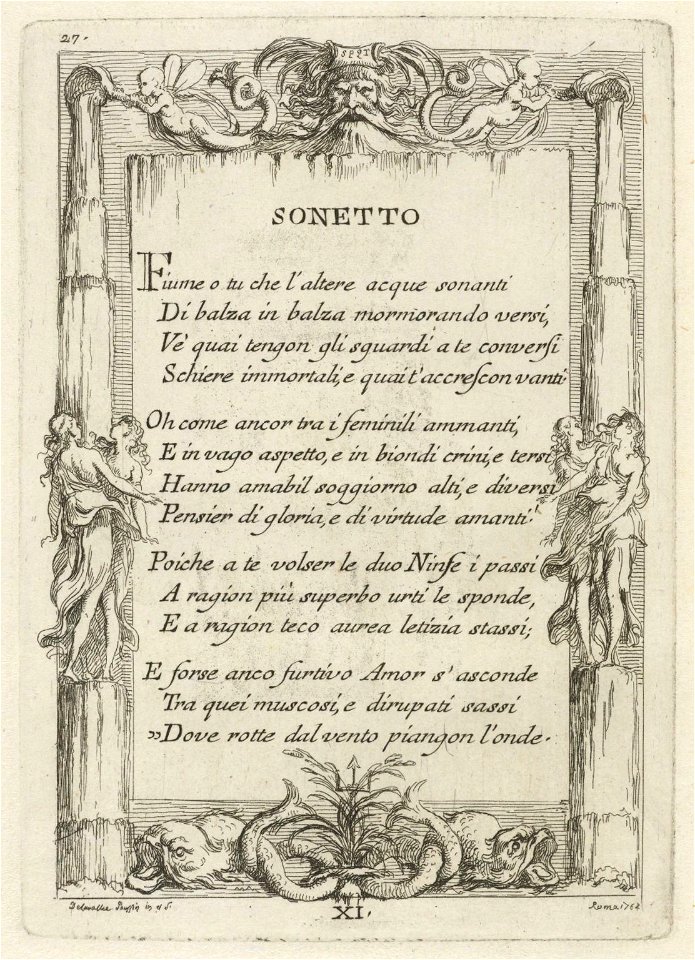 27.
SPQT
SONETTO
Fiume o tu che l'altere acque sonanti
Di balza in balza mormorando versi,
Vè quai tengon gli sguardi a te conversi
Schiere immortali, e quai t'accrescon vanti.
Oh come ancor tra i feminili ammanti,
E in vago aspetto, e in biondi crini, e tersi
Hanno amabil soggiorno alti, e diversi
Pensier di gloria, e di virtude amanti!
Poiche a te volser le duo Ninfe i passi
A ragion più superbo urti le sponde,
E a ragion teco aurea letizia stassi;
E forse anco furtivo Amor s'asconde
Tra quei muscosi, e dirupati sassi
"Dove rotte dal vento piangon l'onde.
in
Roma 1764
XI.